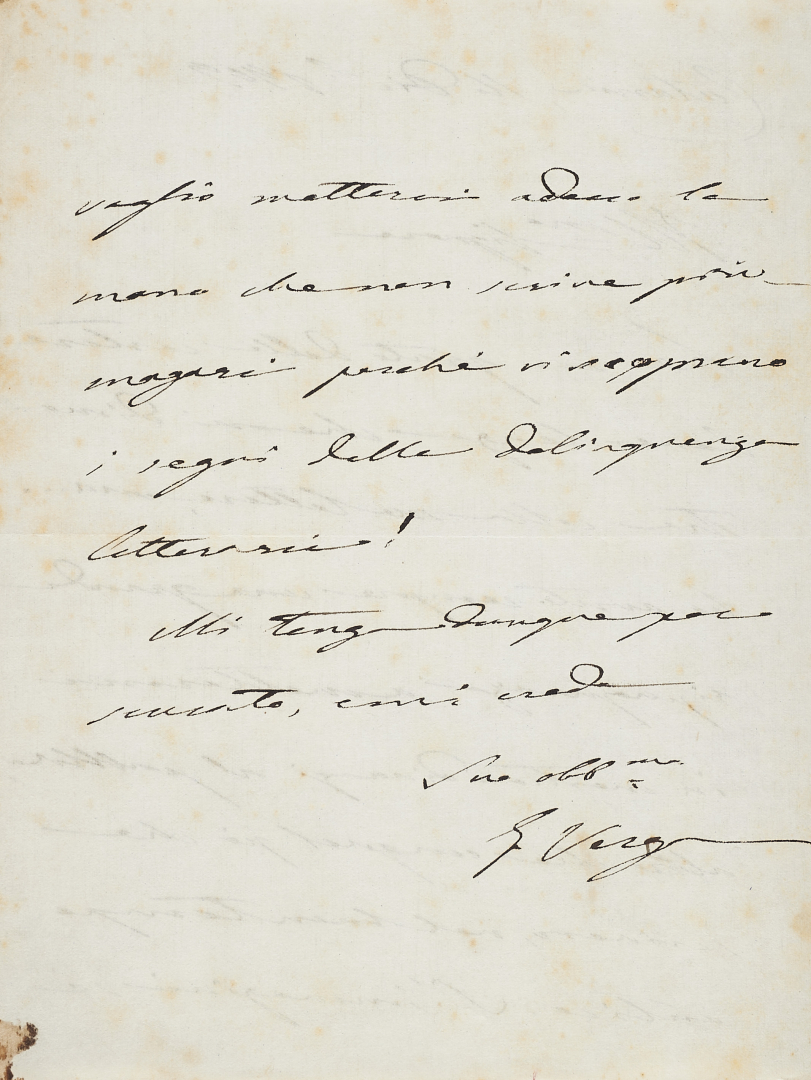 voglio metterci adesso la
mano che non scrive più
magari perché vi scoprano
i segni della delinquenza
letteraria!
Mi tenga dunque per
scusato, e mi creda
Suo obb.mo
G Verga